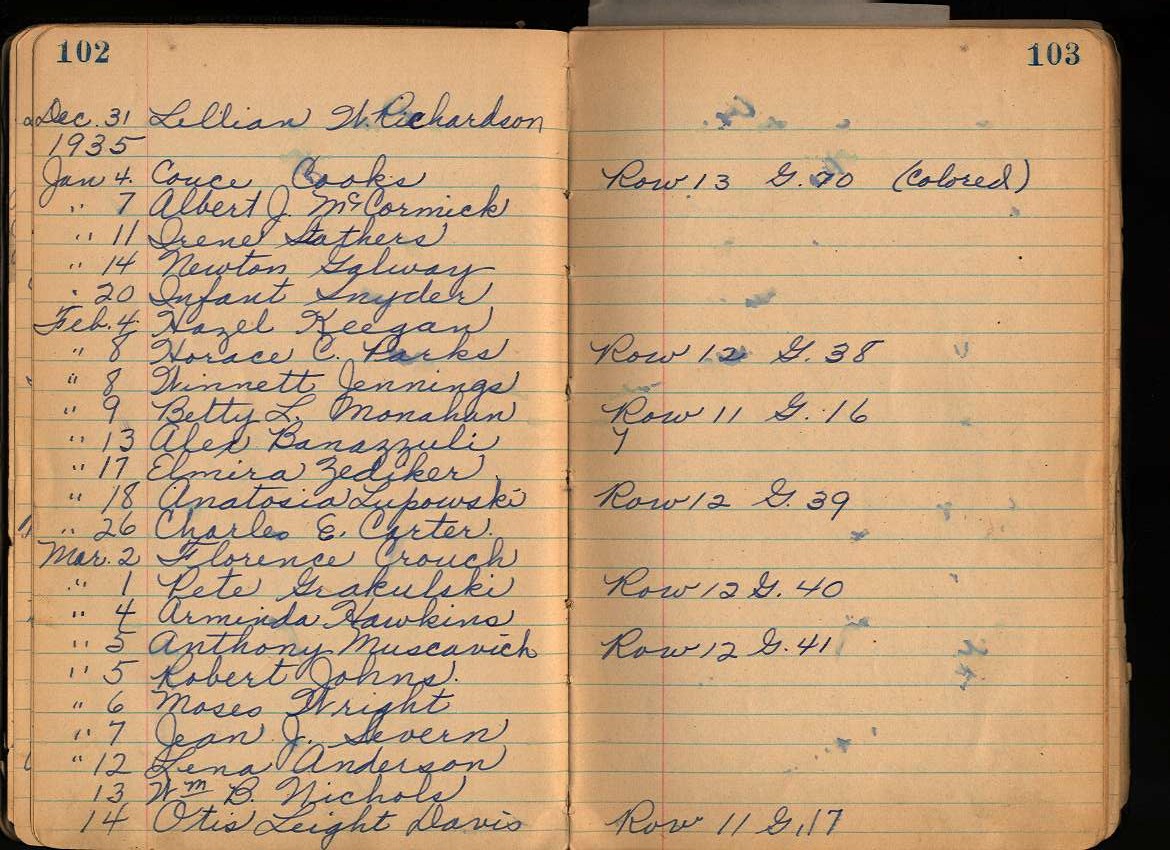 102 103
Dec. 31 Lillian W. Richardson
1935
Jan 4. Couce Cooks Row 13 G. 20 (Colored)
" 7 Albert J. McCormick
" 11 Irene Stathers
" 14 Newton Galway
" 20 Infant Snyder
Feb. 4 Hazel Keegan
" 8 Horace C. Parks Row 12 G. 38
" 8 Winnett Jennings
" 9 Betty L. Monahan Row 11 G. 16
" 13 Alex Banazzuli
" 17 Elmira Zediker
" 18 Anatosia Lupowski Row 12 G. 39
" 26 Charles E. Carter.
Mar. 2 Florence Crouch
" 1 Pete Grakulski Row 12 G. 40
" 4 Arminda Hawkins
" 5 Anthony Muscavich Row 12 G. 41
" 5 Robert Johns.
" 6 Moses Wright
" 7 Jean J. Severn
" 12 Lena Anderson
13 Wm B. Nichols
14 Otis Leight Davis Row 11 G. 17